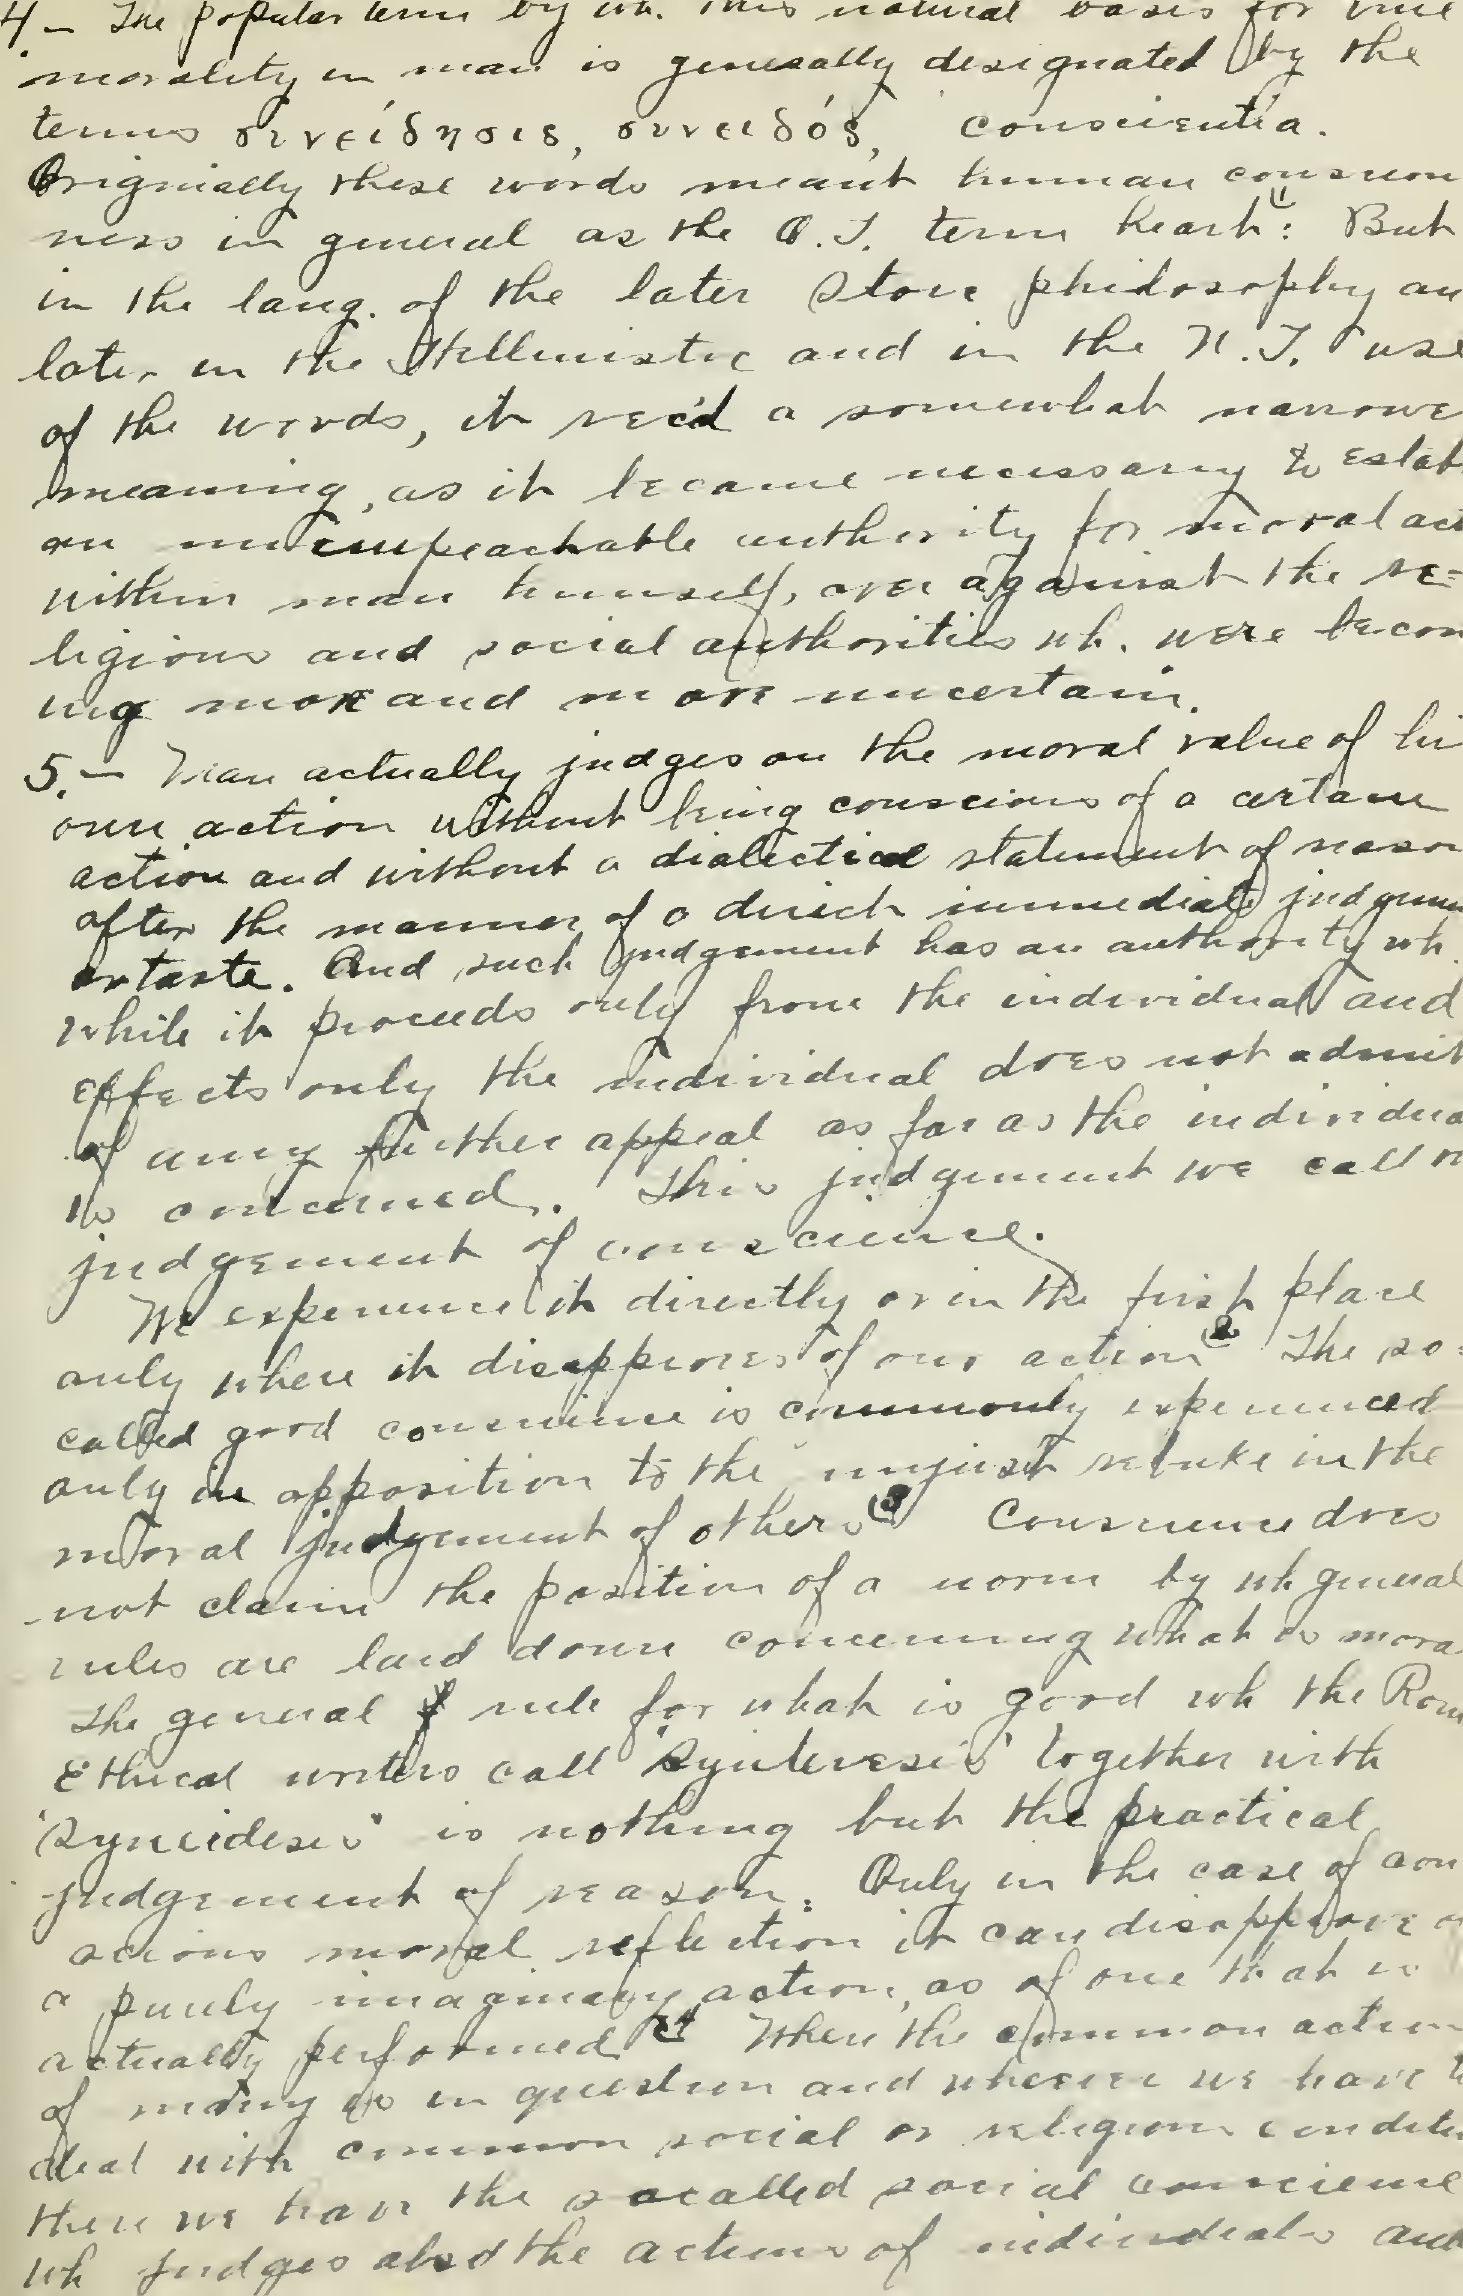 4.- The popular term by wh. this natural basis for true
morality in man is generally designated by the
terms συνείδησις, συνειδός, conscientia.
Originially these words meant human conscious
ness in general as the O.T. term heart: (1 But
in the lang. of the later Stoic philosophy an
later in the Hellenistic and in the N.T. use
of the words, it rec'd a somewhat narrowe
meaning, as it became necessary to estab
an unimpeachable authority for moral act
within man himself, over against the re=
ligious and social authorities wh. were becom
ing more and more uncertain.
5.- Man actually judges on the moral value of hi
own action without being conscious of a certain
action and without a dialectical statement of reason
after the manner of a direct immediate judgemen
or taste. And such judgement has an authority wh.
while it proceeds only from the individual and
effects only the individual does not admit
of any further appeal as far as the individua
is concerned. This judgement we call
judgement of conscience.
We experience it directly or in the first place
only where it disapproves of our action (2 The so=
called good conscience is commonly experienced
only in opposition to the unjust rebuke in the
moral judgement of others (3 Conscience does
not claim the position of a norm by wh general
rules are laid down concerning what is mora
The general rule for what is good wh the Rom
Ethical writers call "Synteresis" together with
"Syneidesis" is nothing but the practical
judgement of reason. Only in the case of con
scious moral reflection it can disapprove o
a purely imaginary action, as of one that is
actually performed (4 When the common action
of many is in question and wherever we have to
deal with common social or religious conditi
there we have the socalled social conscience
wh judges also the actions of individuals and